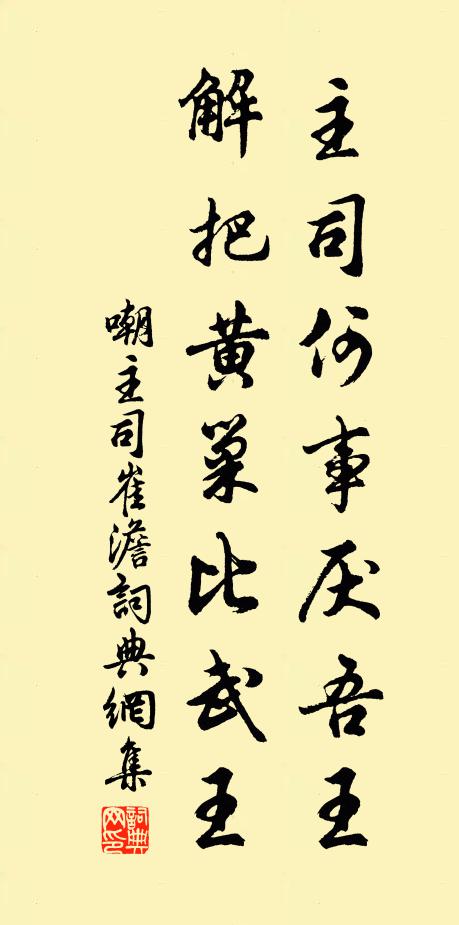 主司何事厌吾王
解把黄巢比武王
嘲主司崔澹詞典網集
詞典网印